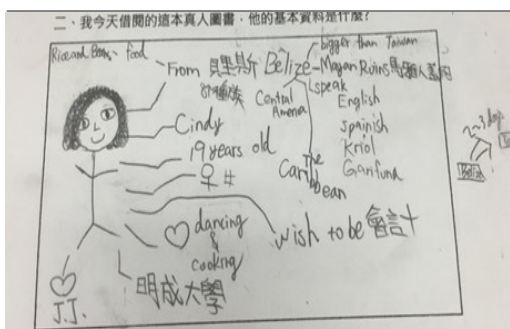 二、我今天借閱的這本真人圖書，他的基本資料是什麼？
Rice and Beans、food
From 貝里斯 Belize
bigger than Taiwan
Mayan Ruins 馬雅人
Central America
speak
English
spainish
Kriol
Garifuna
The Caribbean
Cindy
19 years old
♀ 女
♡ dancing & cooking
wish to be 會計
明成大學
♡ J.J.
2~3 days